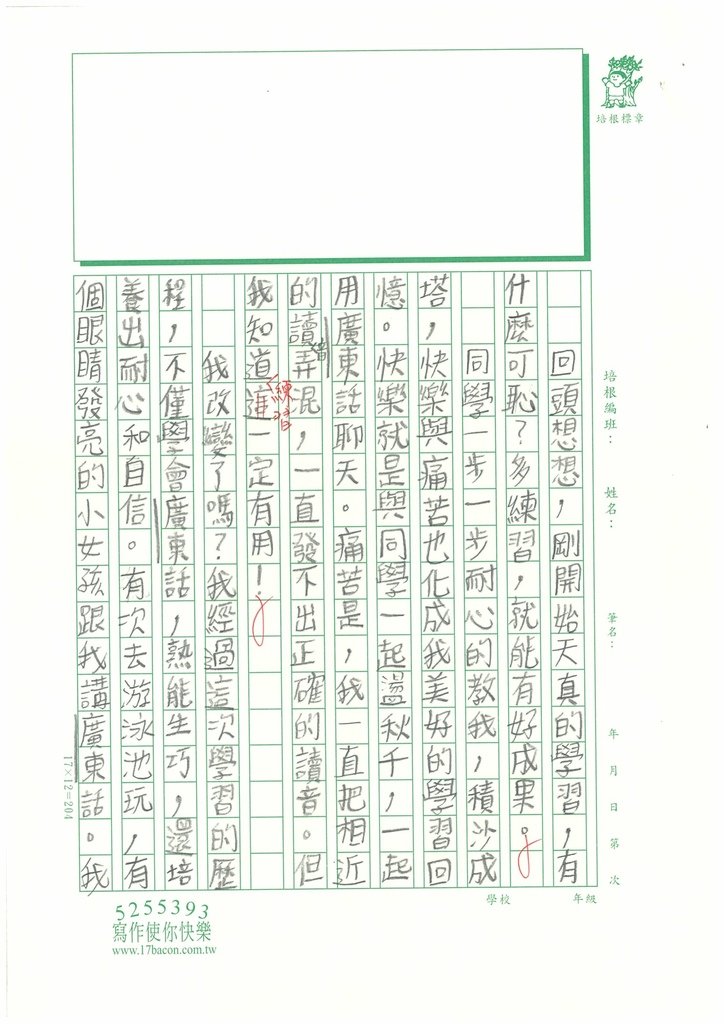 培根標章
培根編班： 姓名： 筆名： 年 月 日 第 次
回頭想想，剛開始天真的學習，有
什麼可恥？多練習，就能有好成果。
同學一步一步耐心的教我，積沙成
塔，快樂與痛苦也化成我美好的學習回
憶。快樂就是與同學一起盪秋千，一起
用廣東話聊天。痛苦是，我一直把相近
的讀音弄混，一直發不出正確的讀音。但
我知道練習一定有用！
我改變了嗎？我經過這次學習的歷
程，不僅學會廣東話，熟能生巧，還培
養出耐心和自信。有次去游泳池玩，有
個眼睛發亮的小女孩跟我講廣東話。我
17×12=204
學校 年級
5255393
寫作使你快樂
www.17bacon.com.tw